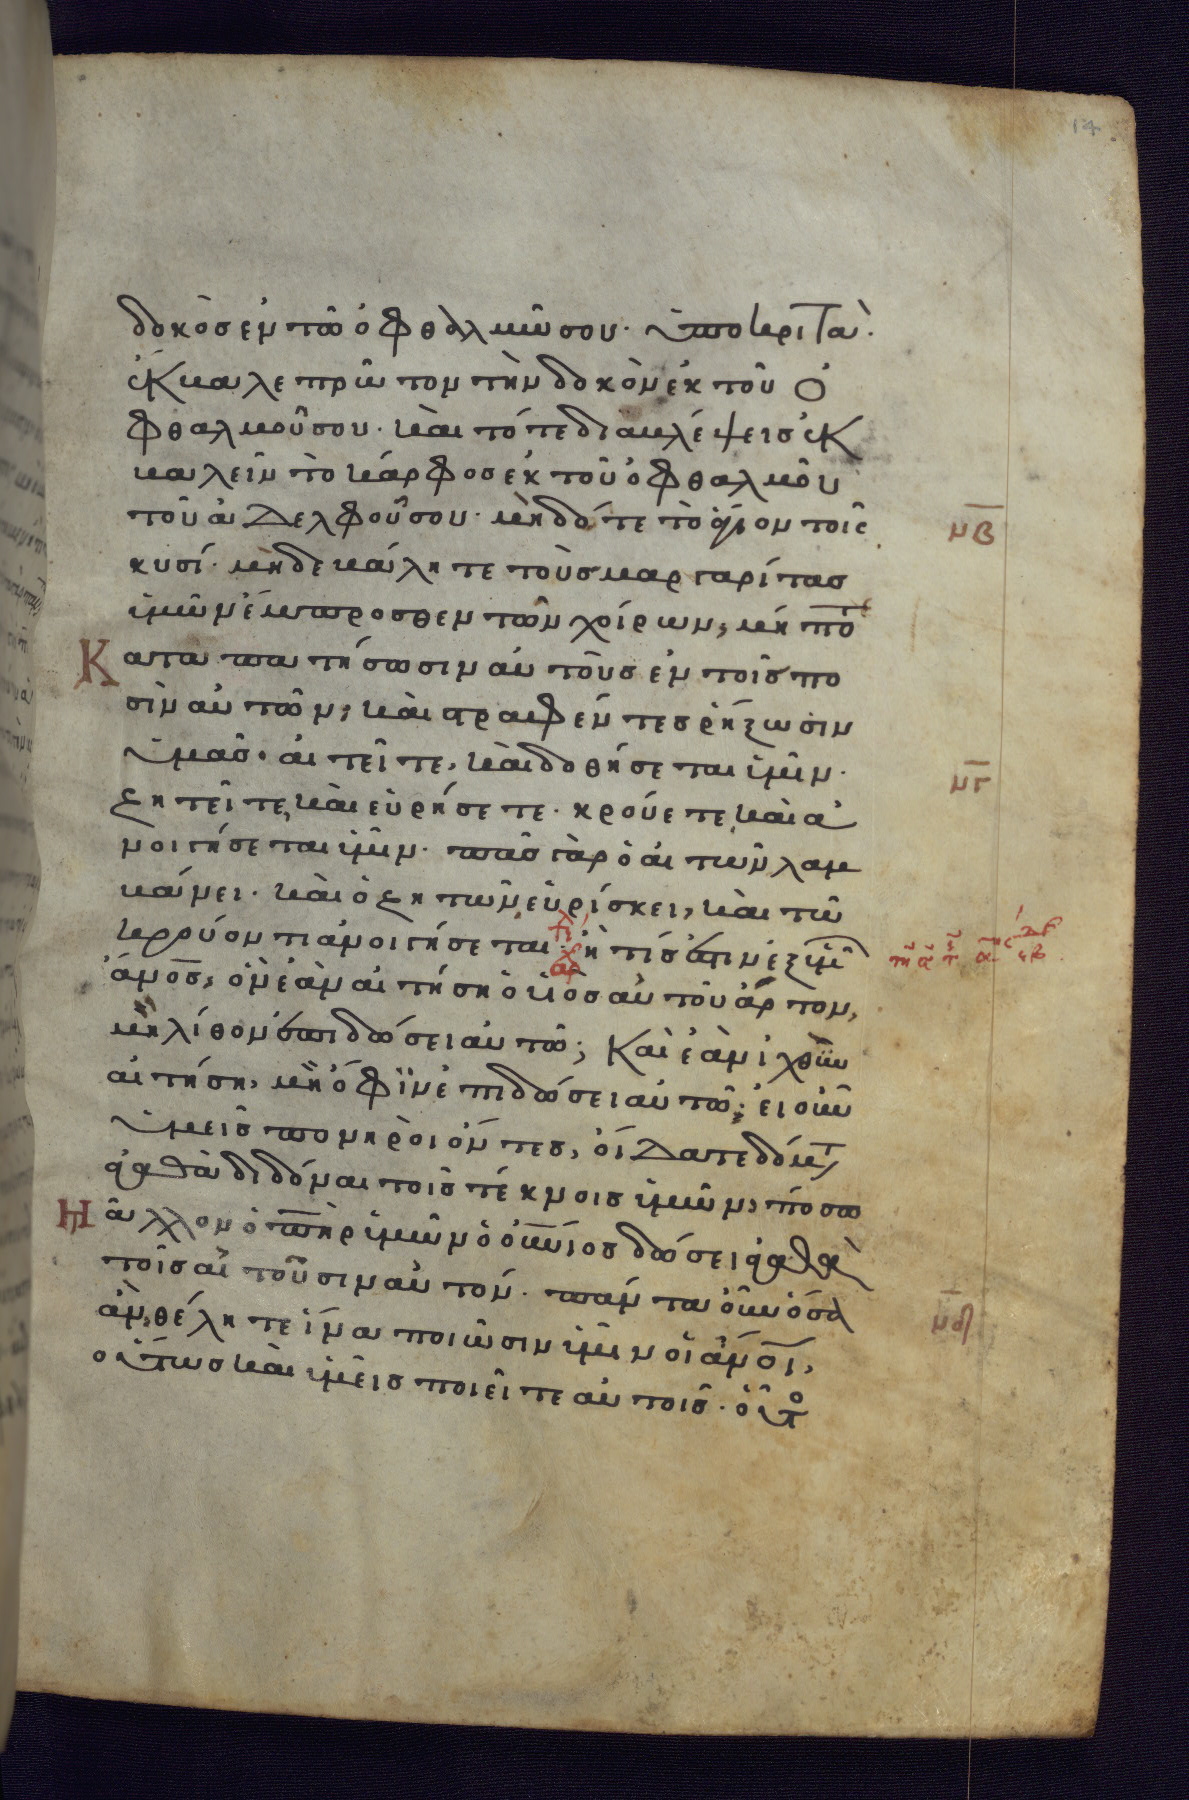 14
δοκὸσ ἐν τῶ ὀφθαλμῶ σου· ὑποκριτὰ·
ἔκβαλε πρῶτον τὴν δοκὸν ἐκ τοῦ ὀ
φθαλμοῦ σου· καὶ τότε διαβλέψεισ ἐκ
βαλεῖν τὸ κάρφοσ ἐκ τοῦ ὀφθαλμοῦ
τοῦ ἀδελφοῦ σου· μὴ δότε τὸ ἅγιον τοῖσ
μβ
κυσί· μὴδε βάλητε τοὺσ μαργαρίτασ
ὑμῶν ἔμπροσθεν τῶν χοίρων, μήποτε
Καταπατήσωσιν αὐτοὺσ ἐν τοῖσ πο
σὶν αὐτῶν, καὶ στραφέντεσ ῥήξωσιν
ὑμᾶσ· αἰτεῖτε, καὶ δοθήσεται ὑμῖν·
μγ
ζητεῖτε, καὶ εὑρήσετε· κρούετε, καὶ ἀ
νοιγήσεται ὑμῖν· πᾶσ γὰρ ὁ αἰτῶν λαμ
βάνει· καὶ ὁ ζητῶν εὑρίσκει, καὶ τῶ
κρούοντι ἀνοιγήσεται· ἢ τίσ ἐστιν ἐξ ὑμῶν
ἄνοσ, ὃν ἐὰν αἰτήση ὁ υἱὸσ αὐτοῦ ἄρτον,
μὴ λίθον ἐπιδώσει αὐτῶ; Καὶ ἐὰν ἰχθὺν
αἰτήση, μὴ ὄφιν ἐπιδώσει αὐτῶ; εἰ οὖν
ὑμεῖσ πονηροὶ ὄντεσ, οἴδατε δόματ
ἀγαθὰ διδόναι τοῖσ τέκνοισ ὑμῶν, πόσω
μᾶλλον ὁ πηρ ὑμῶν ὁ οὐνιοσ δώσει ἀγαθὰ
τοῖσ αἰτοῦσιν αὐτόν· πάντα οὖν ὅσα
μδ
ἂν θέλητε ἵνα ποιῶσιν ὑμῖν οἱ ἄνοι,
οὕτωσ καὶ ὑμεῖσ ποιεῖτε αὐτοῖσ· οὗτο